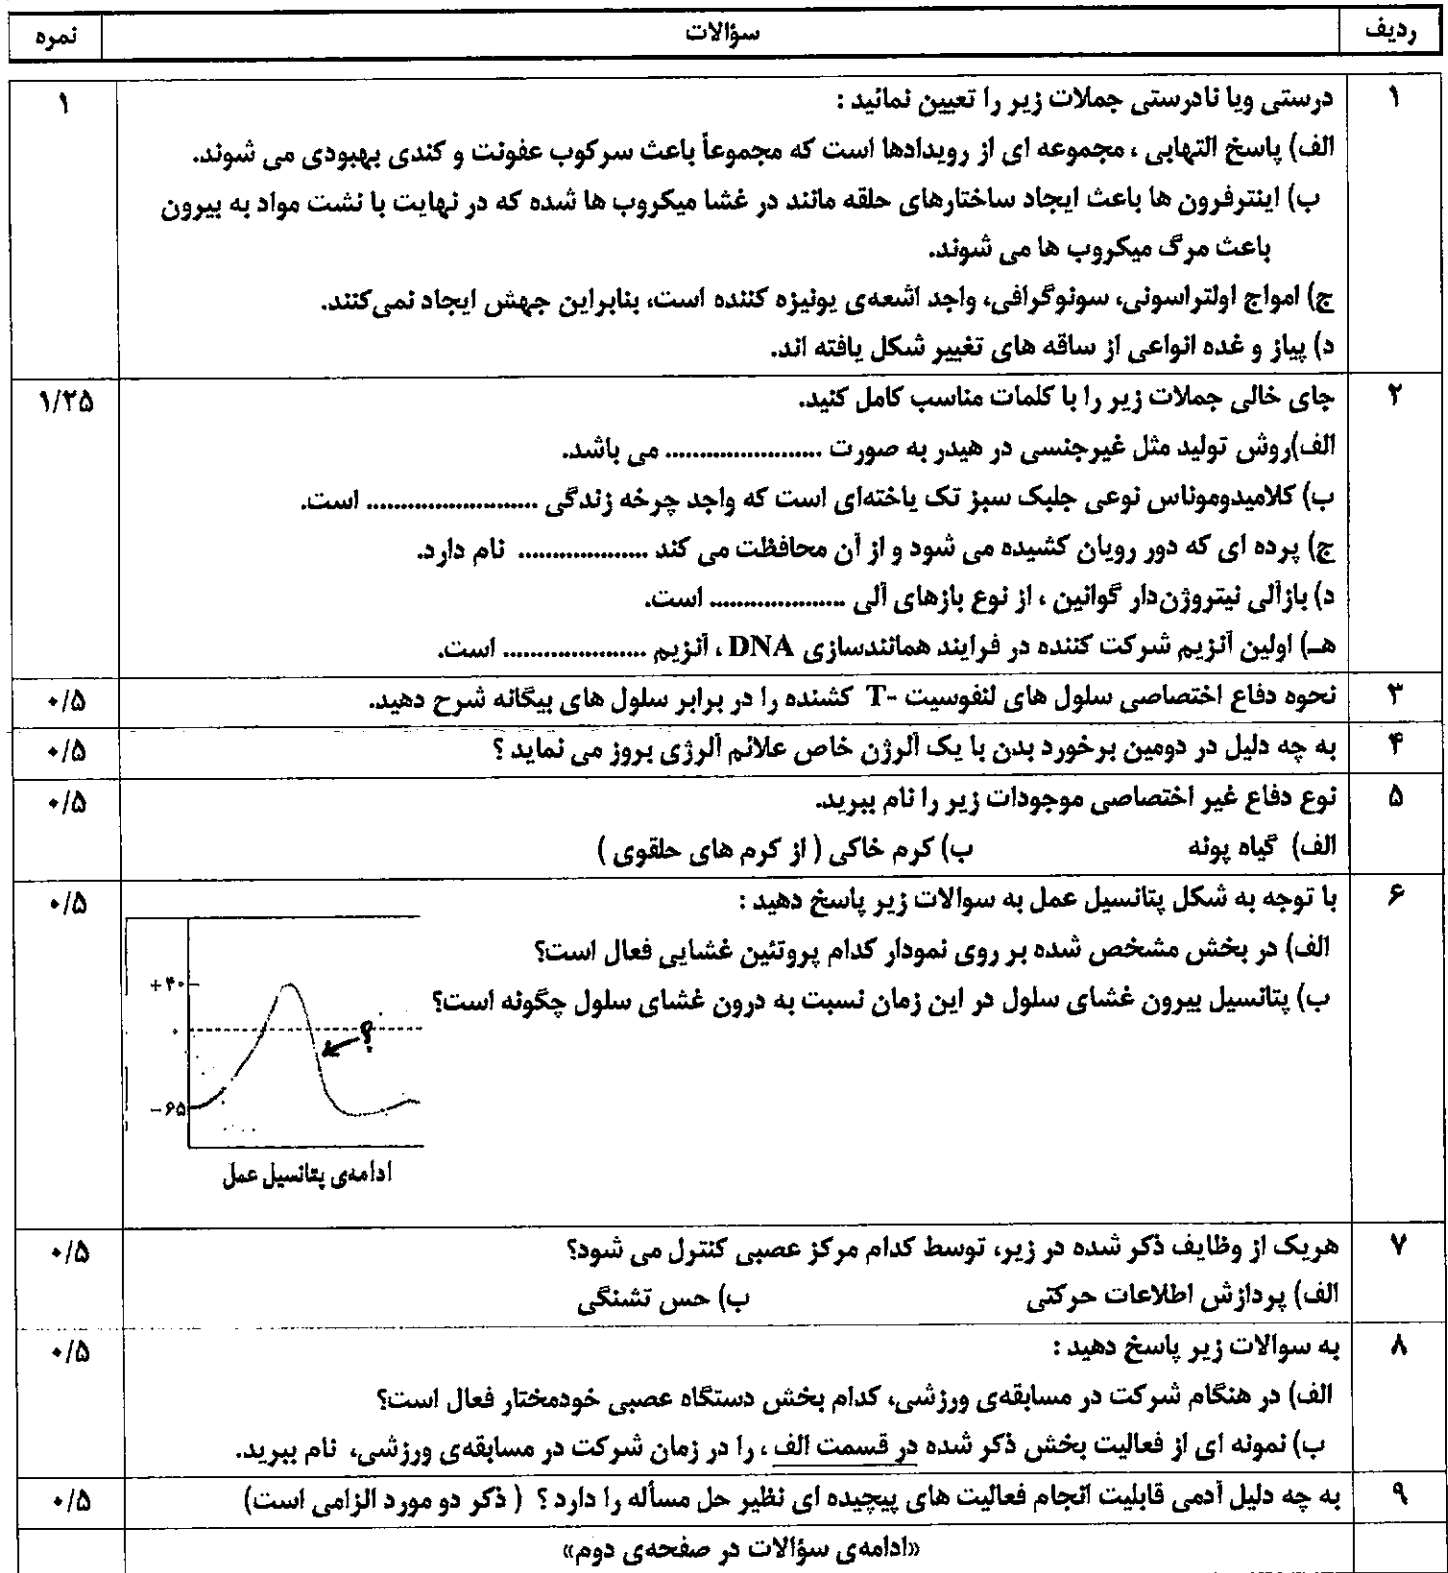 ردیف سؤالات نمره
۱ درستی ویا نادرستی جملات زیر را تعیین نمائید : ۱
الف) پاسخ التهابی ، مجموعه ای از رویدادها است که مجموعاً باعث سرکوب عفونت و کندی بهبودی می شوند.
ب) اینترفرون ها باعث ایجاد ساختارهای حلقه مانند در غشا میکروب ها شده که در نهایت با نشت مواد به بیرون
باعث مرگ میکروب ها می شوند.
ج) امواج اولتراسونی، سونوگرافی، واجد اشعه‌ی یونیزه کننده است، بنابراین جهش ایجاد نمی‌کنند.
د) پیاز و غده انواعی از ساقه های تغییر شکل یافته اند.
۲ جای خالی جملات زیر را با کلمات مناسب کامل کنید. ۱/۲۵
الف)روش تولید مثل غیرجنسی در هیدر به صورت ....................... می باشد.
ب) کلامیدوموناس نوعی جلبک سبز تک یاخته‌ای است که واجد چرخه زندگی ......................... است.
ج) پرده ای که دور رویان کشیده می شود و از آن محافظت می کند ................... نام دارد.
د) بازآلی نیتروژن‌دار گوانین ، از نوع بازهای آلی .................... است.
هـ) اولین آنزیم شرکت کننده در فرایند همانندسازی DNA ، آنزیم ..................... است.
۳ نحوه دفاع اختصاصی سلول های لنفوسیت -T کشنده را در برابر سلول های بیگانه شرح دهید. ۰/۵
۴ به چه دلیل در دومین برخورد بدن با یک آلرژن خاص علائم آلرژی بروز می نماید ؟ ۰/۵
۵ نوع دفاع غیر اختصاصی موجودات زیر را نام ببرید. ۰/۵
الف) گیاه پونه ب) کرم خاکی ( از کرم های حلقوی )
۶ با توجه به شکل پتانسیل عمل به سوالات زیر پاسخ دهید : ۰/۵
الف) در بخش مشخص شده بر روی نمودار کدام پروتئین غشایی فعال است؟
ب) پتانسیل بیرون غشای سلول در این زمان نسبت به درون غشای سلول چگونه است؟
+۴۰
۰
؟
−۶۵
ادامه‌ی پتانسیل عمل
۷ هریک از وظایف ذکر شده در زیر، توسط کدام مرکز عصبی کنترل می شود؟ ۰/۵
الف) پردازش اطلاعات حرکتی ب) حس تشنگی
۸ به سوالات زیر پاسخ دهید : ۰/۵
الف) در هنگام شرکت در مسابقه‌ی ورزشی، کدام بخش دستگاه عصبی خودمختار فعال است؟
ب) نمونه ای از فعالیت بخش ذکر شده در قسمت الف ، را در زمان شرکت در مسابقه‌ی ورزشی، نام ببرید.
۹ به چه دلیل آدمی قابلیت انجام فعالیت های پیچیده ای نظیر حل مسأله را دارد ؟ ( ذکر دو مورد الزامی است) ۰/۵
«ادامه‌ی سؤالات در صفحه‌ی دوم»